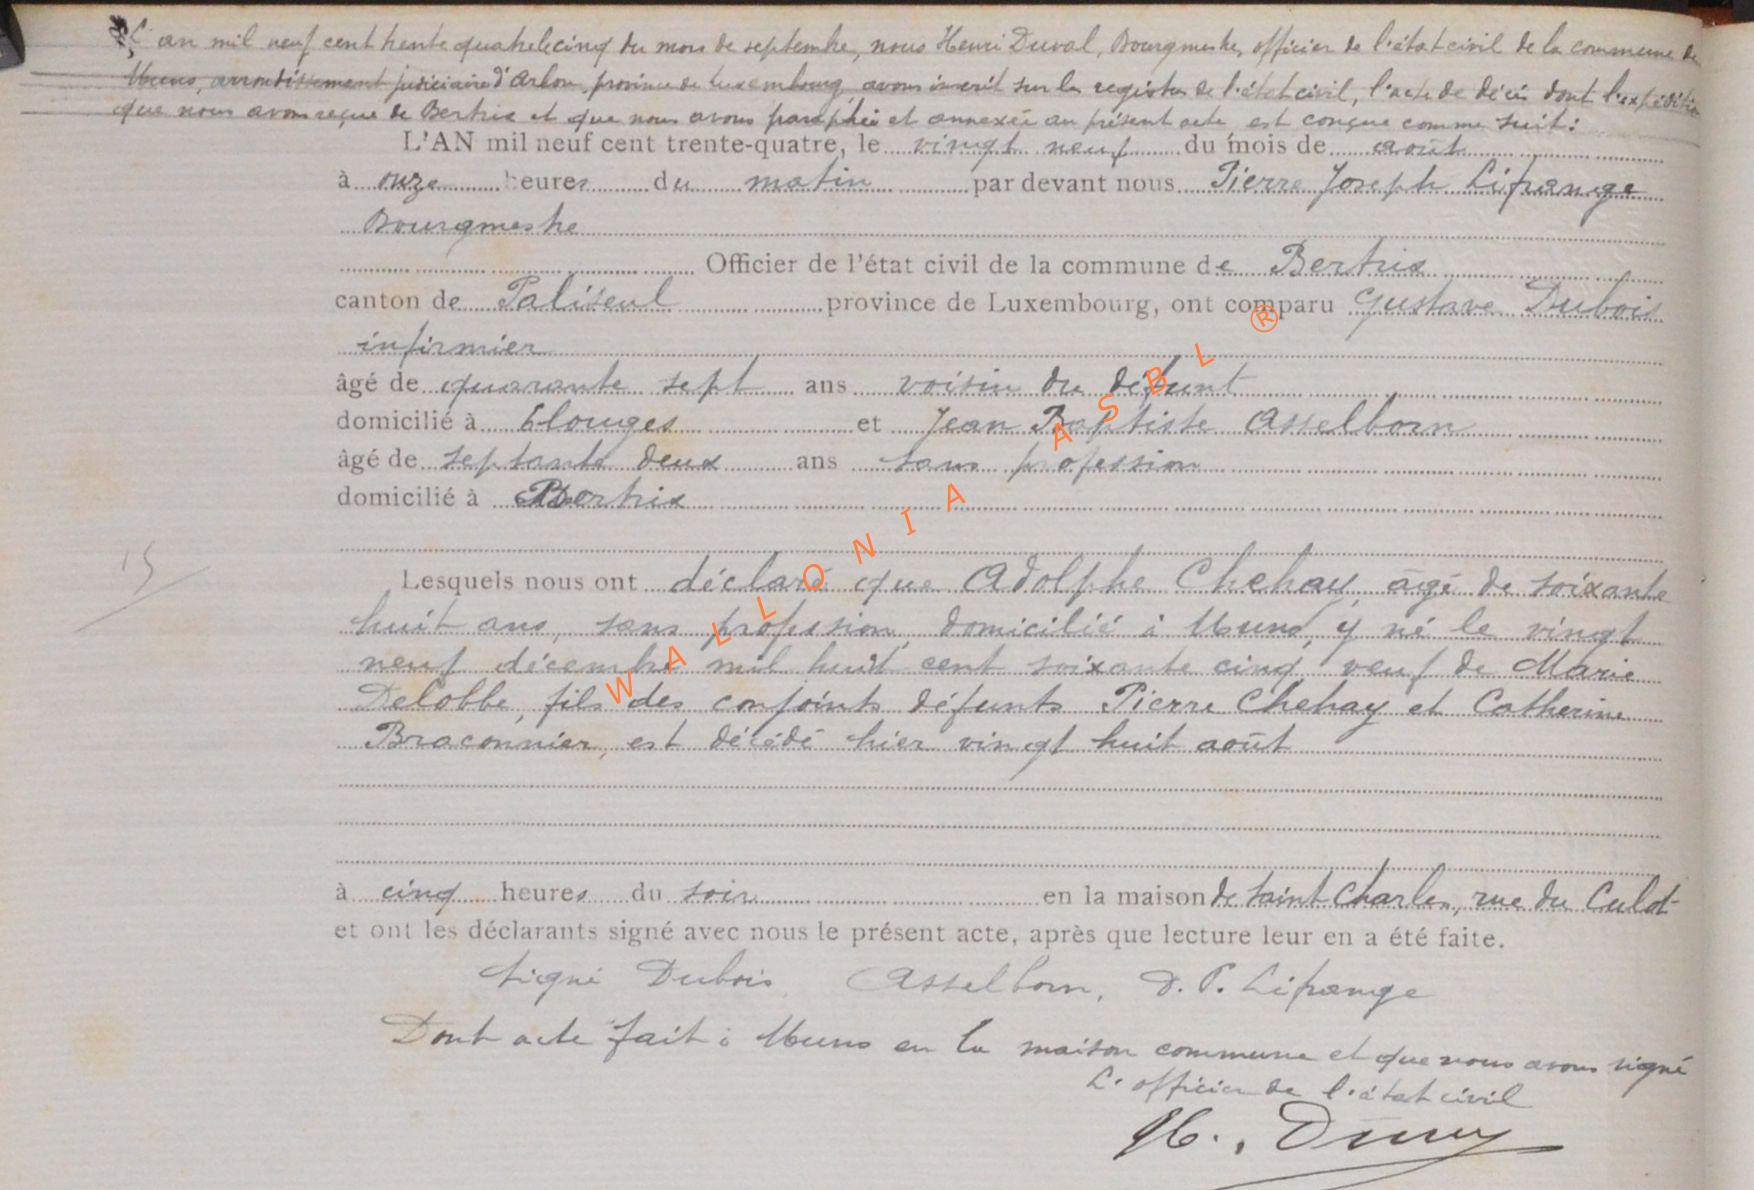 L'an mil neuf cent trente quatre le cinq du mois de septembre, nous Henri Duval, Bourgmestre, officier de l'état civil de la commune de
Muno, arrondissement judiciaire d'Arlon, province de Luxembourg, avons inscrit sur les registres de l'état civil, l'acte de décès dont l'expédition
que nous avons reçue de Bertrix et que nous avons paraphée et annexée au présent acte est conçue comme suit :
L'AN mil neuf cent trente-quatre, le vingt neuf du mois de août
à onze heures du matin par devant nous Pierre Joseph Lifrange
Bourgmestre
Officier de l'état civil de la commune de Bertrix
canton de Paliseul province de Luxembourg, ont comparu Gustave Dubois
infirmier
âgé de quarante sept ans voisin du défunt
domicilié à Elouges et Jean Baptiste Asselborn
âgé de septante deux ans sans profession
domicilié à Bertrix
15
Lesquels nous ont déclaré que Adolphe Chehay, âgé de soixante
huit ans, sans profession, domicilié à Muno, y né le vingt
neuf décembre mil huit cent soixante cinq, veuf de Marie
Delobbe, fils des conjoints défunts Pierre Chehay et Catherine
Braconnier, est décédé hier vingt huit août
à cinq heures du soir en la maison de Saint Charles, rue du Culot
et ont les déclarants signé avec nous le présent acte, après que lecture leur en a été faite.
Signé Dubois, Asselborn, D. P. Lifrange
Dont acte fait à Muno en la maison commune et que nous avons signé
L'officier de l'état civil
H. Duval
WALLONIA ASBL ®